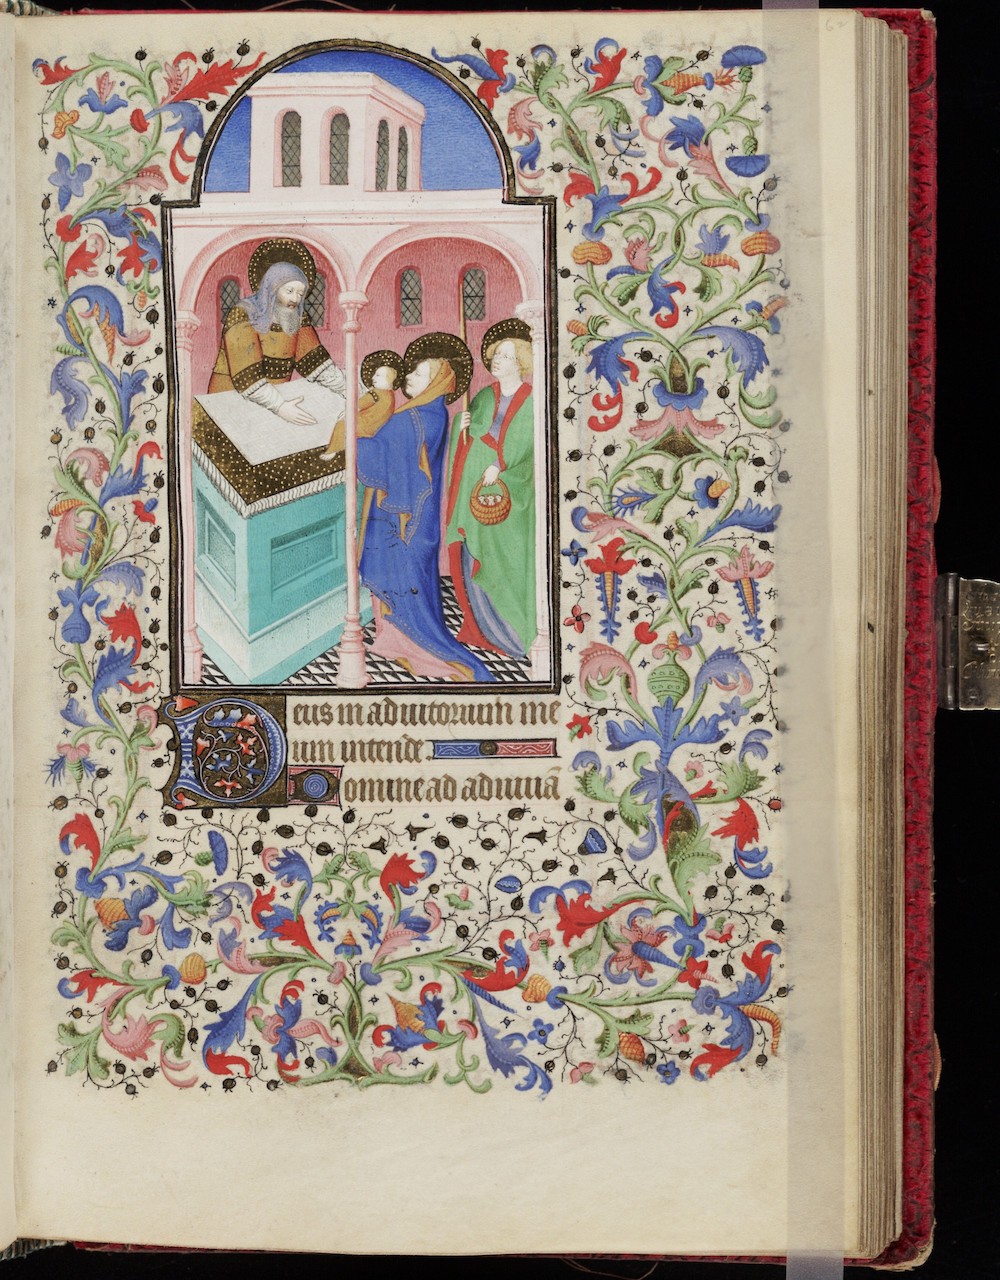 62
Deus in adiutorium me
um intende.
Domine ad adiuuā